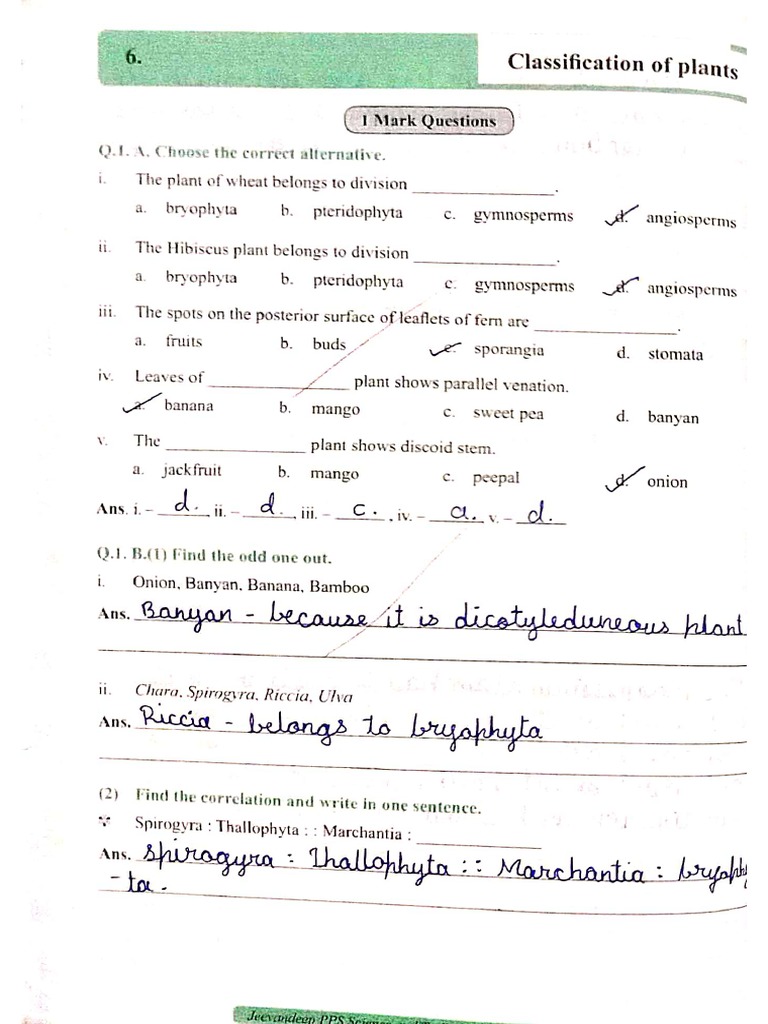 6.
Classification of plants
1 Mark Questions
Q.1. A. Choose the correct alternative.
i. The plant of wheat belongs to division ____________.
a. bryophyta b. pteridophyta c. gymnosperms d. angiosperms
ii. The Hibiscus plant belongs to division ____________.
a. bryophyta b. pteridophyta c. gymnosperms d. angiosperms
iii. The spots on the posterior surface of leaflets of fern are ____________.
a. fruits b. buds c. sporangia d. stomata
iv. Leaves of ____________ plant shows parallel venation.
a. banana b. mango c. sweet pea d. banyan
v. The ____________ plant shows discoid stem.
a. jackfruit b. mango c. peepal d. onion
Ans. i. – d. ii. – d. , iii. – c. , iv. – a. v. – d.
Q.1. B.(1) Find the odd one out.
i. Onion, Banyan, Banana, Bamboo
Ans. Banyan - because it is dicotyleduneous plant
ii. Chara, Spirogyra, Riccia, Ulva
Ans. Riccia - belongs to bryophyta
(2) Find the correlation and write in one sentence.
Spirogyra : Thallophyta : : Marchantia : ____________
Ans. Spirogyra : Thallophyta :: Marchantia : bryophy
- ta.
Jeevandeep PPS Science